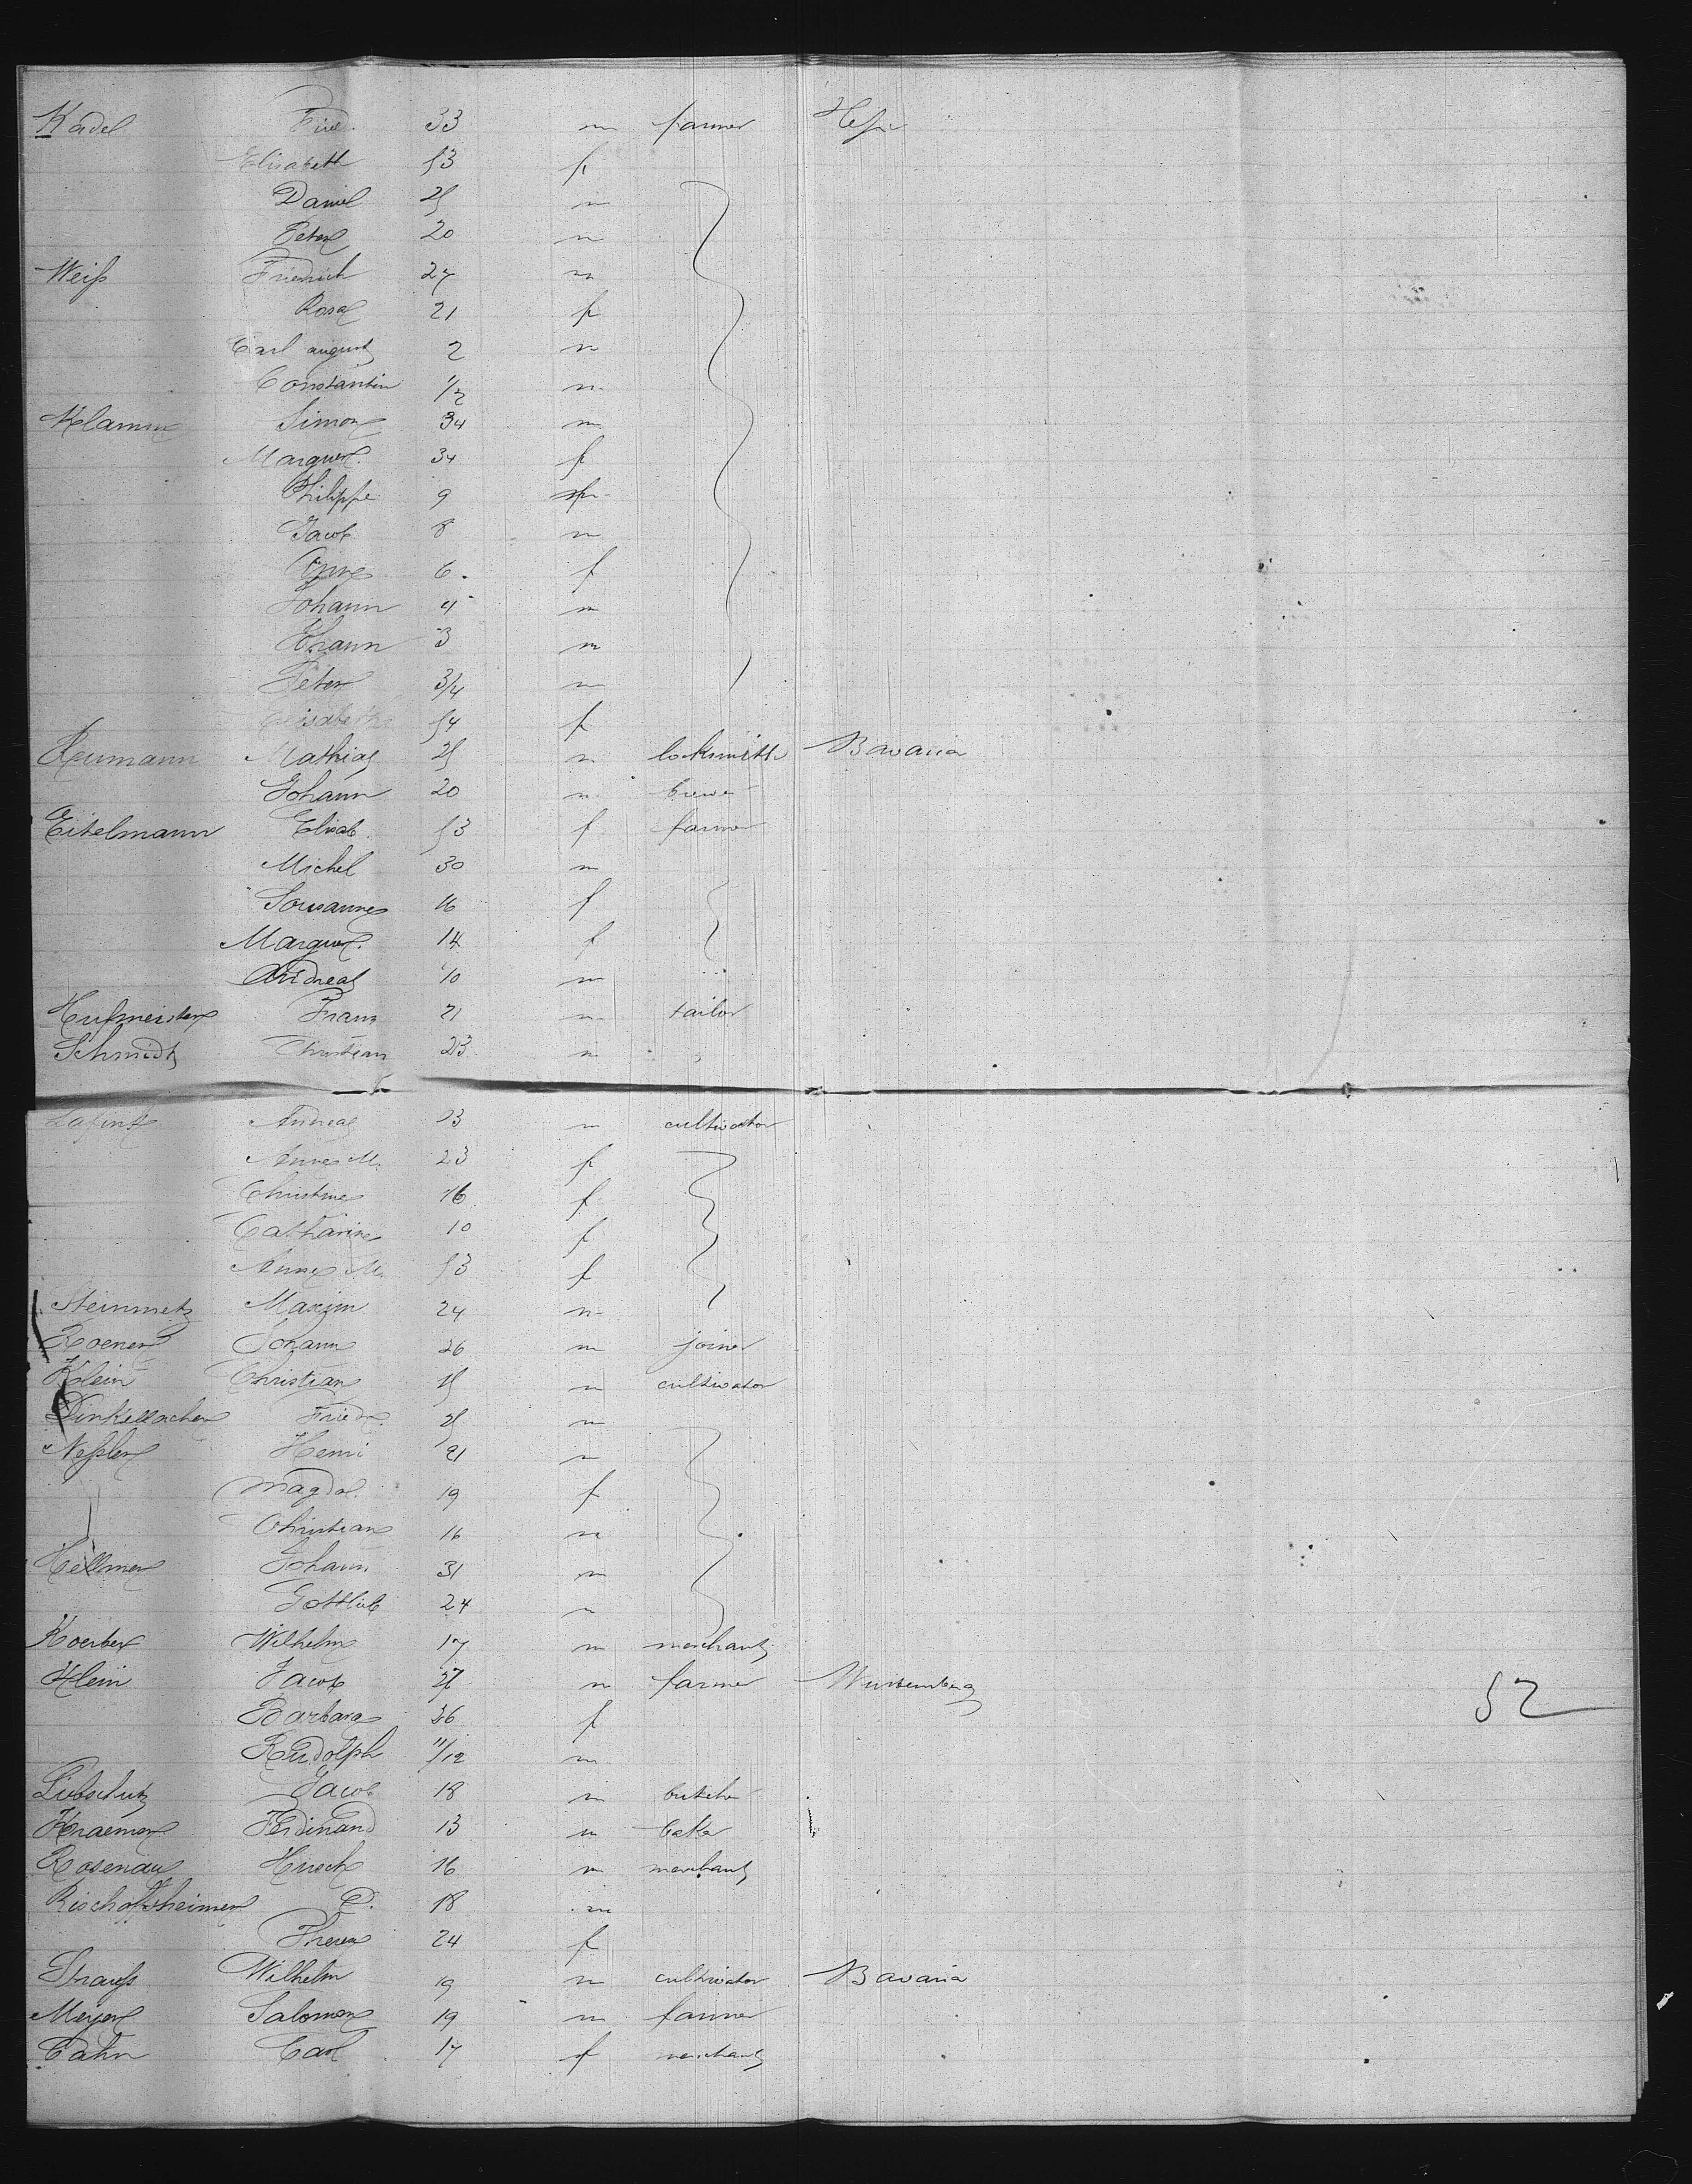 Kadel Fried. 33 m farmer Hesse
Elisabeth 53 f
Daniel 25 m
Peter 20 m
Weiss Friedrich 27 m
Rosa 21 f
Carl august 2 m
Constantin 1/2 m
Klamm Simon 34 m
Marguer. 34 f
Philippe 9 m
Jacob 8 m
Anne 6 f
Johann 4 m
Johann 3 m
Peter 3/4 m
Elisabeth 54 f
Reumann Mathias 25 m locksmith Bavaria
Johann 20 m brewer
Eitelmann Elisab. 53 f farmer
Michel 30 m
Sousanne 16 f
Marguer. 14 f
Andreas 10 m
Hufmeister Franz 21 m tailor
Schmidt Christian 23 m "
Andreas 23 m cultivator
Anne M. 23 f
Christine 16 f
Catharine 10 f
Anne M. 53 f
Steinmetz Maxim 24 m
Roener Johann 26 m joiner
Klein Christian 15 m cultivator
Dinkellacker Friedr. 25 m
Nessler Henri 21 m
Magdal. 19 f
Christian 16 m
Hellmer Johann 31 m
Gottlieb 24 m
Koerber Wilhelm 17 m merchant
Klein Jacob 27 m farmer Wurtemberg
Barbara 26 f 52
Rudolph 11/12 m
Liebschutz Jacob 18 m butcher
Kraemer Ferdinand 13 m baker
Rosenau Hirsch 16 m merchant
Bischoffsheimer E. 18 m
Theres 24 f
Strauss Wilhelm 19 m cultivator Bavaria
Meyer Salomon 19 m farmer
Cahn Carl 17 f merchant